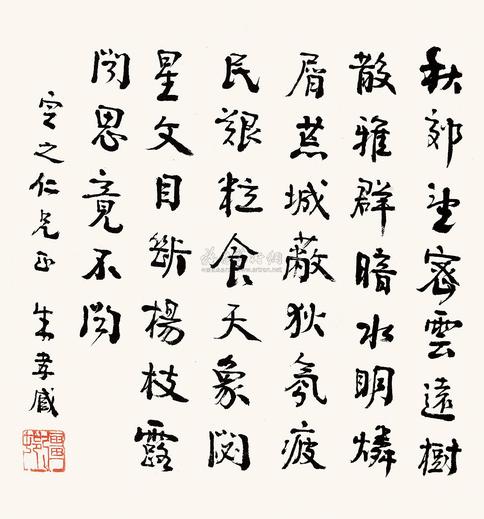 秋郊望密雲遠樹
散雅群暗水明燐
屑蕪城蔽狄氛疲
民艱粒食天象閟
星文目斷楊枝露
聞思竟不聞
之仁兄正 朱孝臧
www.artron.net